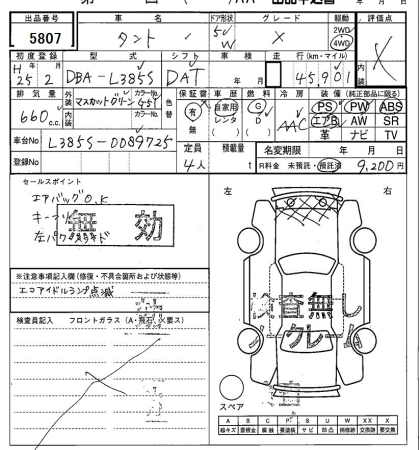 出品番号 車名 ドア形状 グレード 駆動 評価点
5807 タント 5 W X 2WD 4WD X
初度登録 型式 シフト 年月 車検 走行(km・マイル) 内装
H 25年 2月 DBA-L385S DAT 年 月 45,901
排気量 外装 マスカットグリーン カラーNo. 色替 保証書 車歴 燃料 冷房 装備(純正部品に限る)
660c.c. 内装 カラーNo. 有 無 自家用 レンタ G D AAC PS PW ABS
エアB AW SR
革 ナビ TV
車台No L385S-0089725 定員 積載量 名変期限 年 月 日
登録No 4人 t R料金 未預託・預託済 9,200円
セールスポイント 左 右
エアバッグO.K
キー
左パワ
無効
※注意事項記入欄(修復・不具合箇所および状態等)
エコアイドルランプ点滅
検査無し
検査員記入 フロントガラス(A・飛石・X要ス)
ノークレーム
スペア
A B C P S U W XX X
線キズ 要板金 腐蝕 要塗装 サビ 凹凸 補修跡 交換跡 要交換